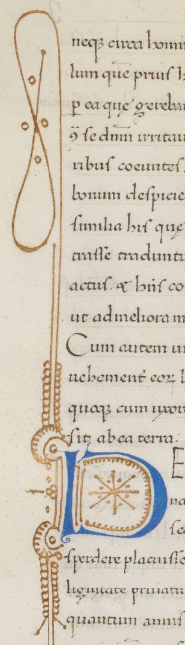 neqꝫ circa homi
lum quē prius h
ꝑ ea quę gereba
ꝙ se dnm irritau
ribus coeuntes
bonum despicie
similia his quę
trasse tradunt
actus. & hiis co
ut ad meliora m
Cum autem ui
uehement eoꝝ
quoqꝫ cum uxor
sit ab ea terra.
D E
na
sperdere placuisse
lignitate priuatu
quantum anni